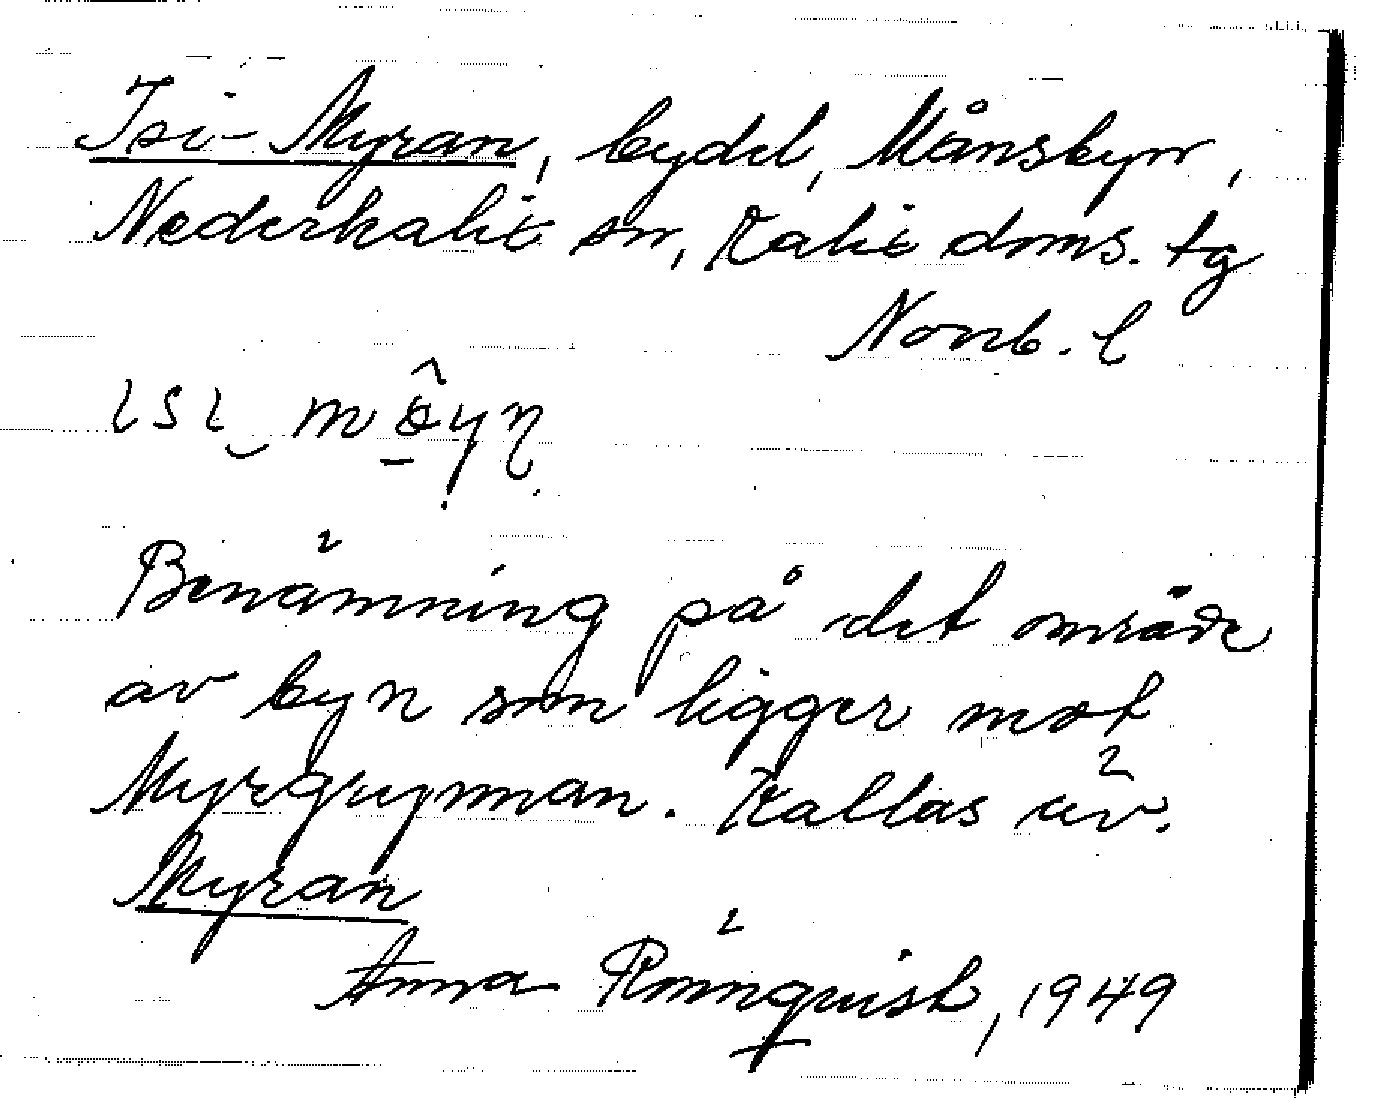 Isi-Myran, bydel, Månsbyn,
Nederkalix sn, Kalix doms. tg
Norrb. l
Benämning på det område
av byn som ligger mot
Myregrynnan. Kallas äv.
Myran
Anna Rönnquist, 1949